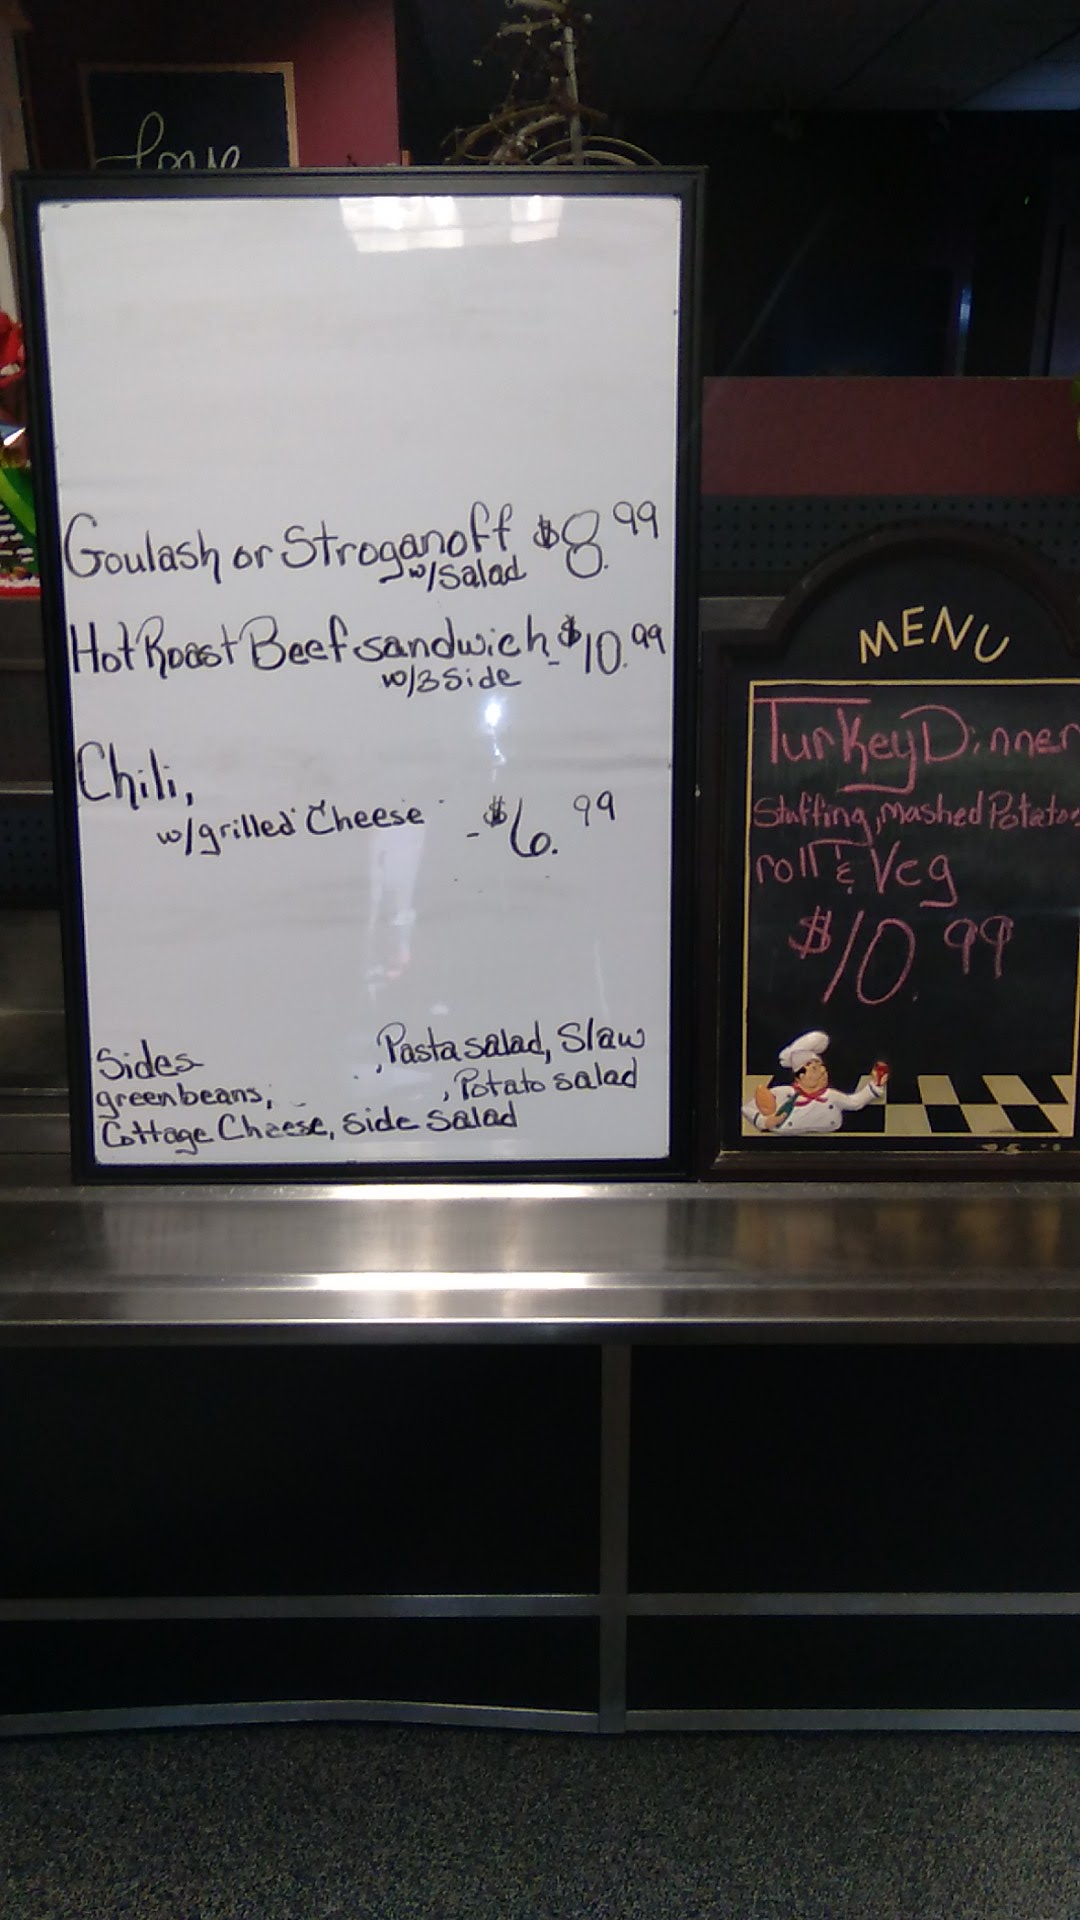 Love
Goulash or Stroganoff $8.99
w/Salad
Hot Roast Beef sandwich - $10.99
w/3 Side
Chili,
w/grilled Cheese - $6.99
Sides , Pasta salad, Slaw
greenbeans, , Potato salad
Cottage Cheese, Side Salad
MENU
Turkey Dinner
Stuffing, mashed Potatos
roll & Veg
$10.99